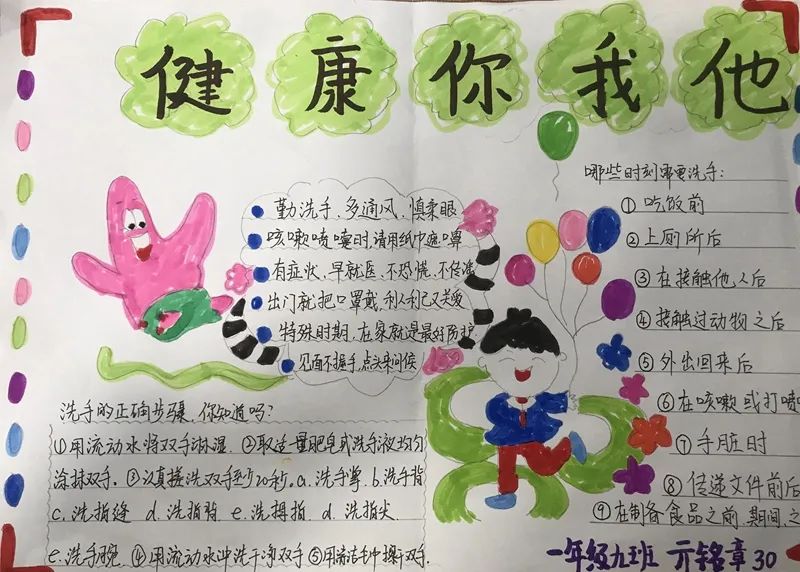 健康你我他
勤洗手、多通风、慎柔眼
咳嗽喷嚏时,请用纸巾遮嘴
有症状、早就医、不恐慌、不传谣
出门就把口罩戴,利人利己又关爱
特殊时期,在家就是最好防护
见面不握手,点头来问候
哪些时刻需要洗手:
①吃饭前
②上厕所后
③在接触他人后
④接触过动物之后
⑤外出回来后
⑥在咳嗽或打喷
⑦手脏时
⑧传递文件前后
⑨在制备食品之前、期间、之
洗手的正确步骤,你知道吗?
①用流动水将双手淋湿 ②取适量肥皂或洗手液均匀
涂抹双手。③认真搓洗双手至少20秒。a.洗手掌 b.洗手背
c.洗指缝 d.洗指背 e.洗拇指 d.洗指尖
e.洗手腕 ④用流动水冲洗干净双手⑤用清洁毛巾擦干双手.
一年级九班 亓铭章 30